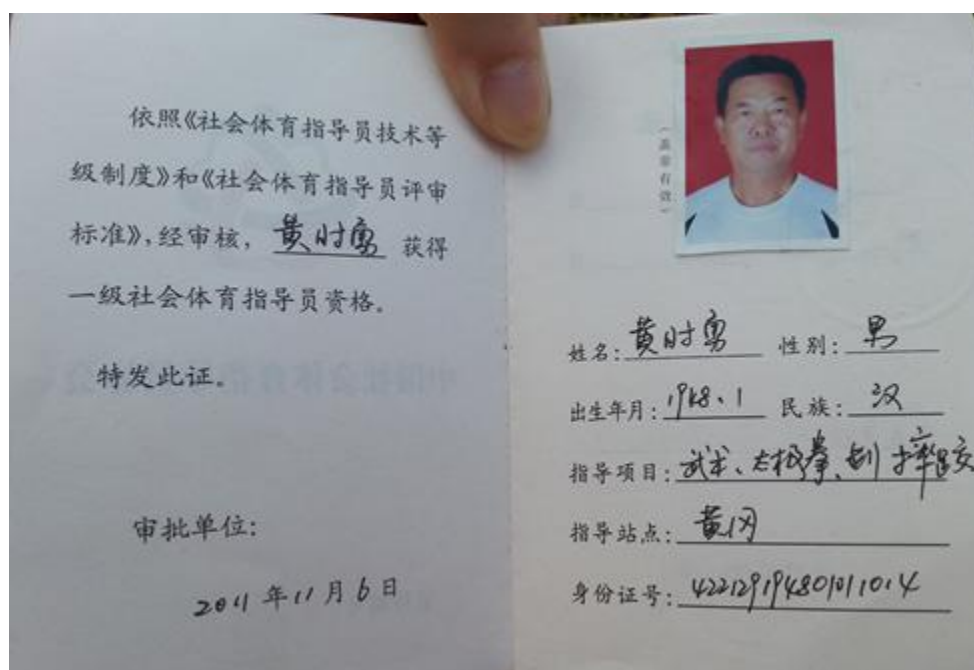 依照《社会体育指导员技术等
级制度》和《社会体育指导员评审
标准》，经审核，黄时勇 获得
一级社会体育指导员资格。
特发此证。
审批单位：
2011 年 11 月 6 日
（盖章有效）
姓名：黄时勇 性别：男
出生年月：1948、1 民族：汉
指导项目：武术、太极拳、剑 摔跤
指导站点：黄冈
身份证号：422129194801011014